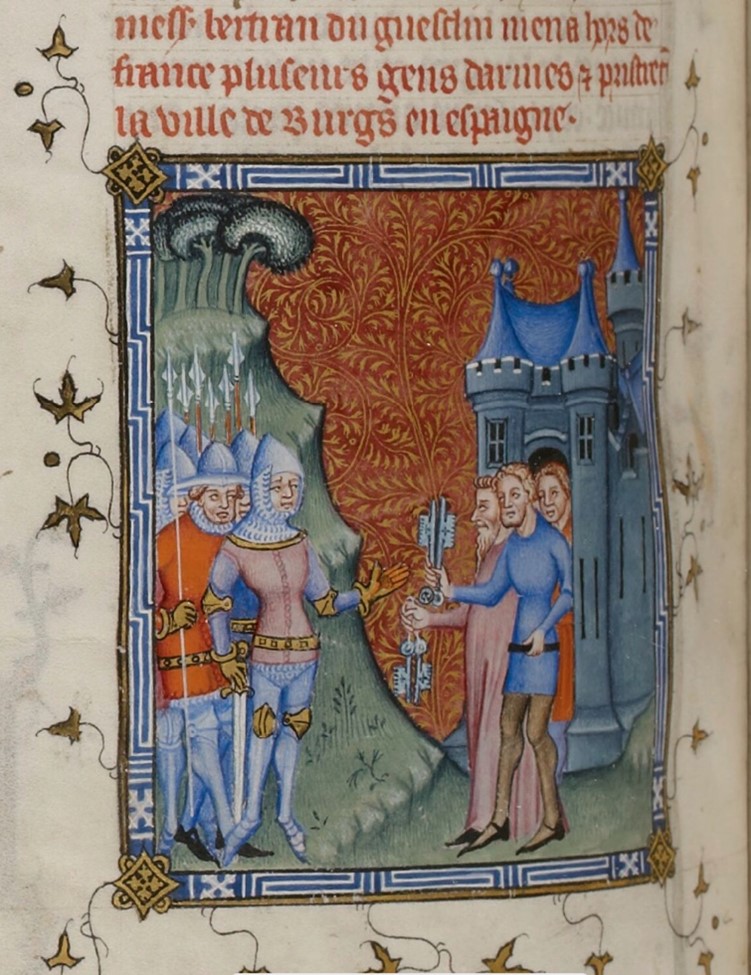 mess. bertran du guesclin mena hors de
france pluseurs gens darmes ⁊ prist
la ville de Burgs en espaigne.